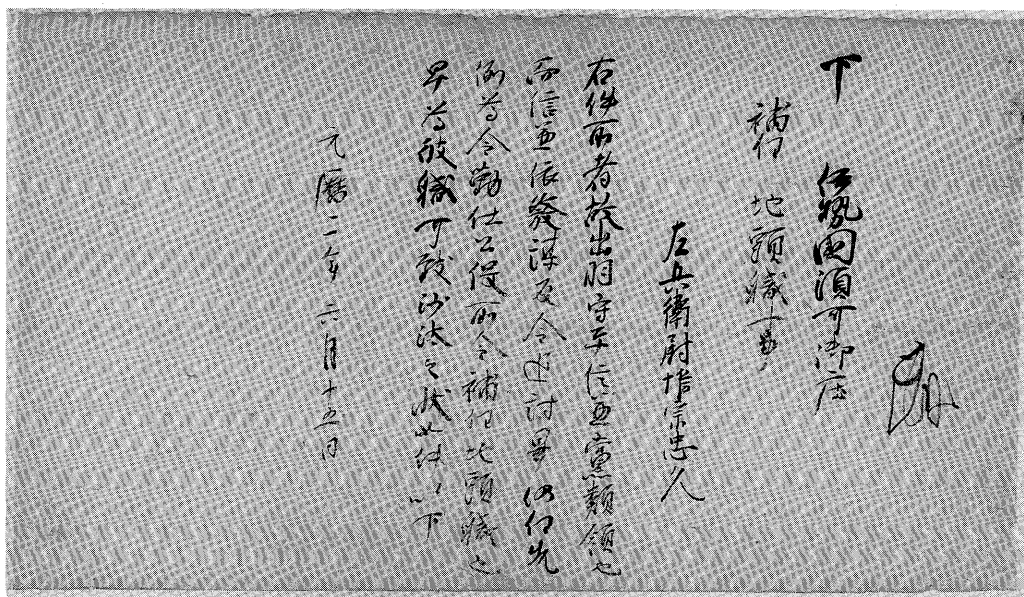 下 伊勢國須可御庄
補任 地頭職事
左兵衛尉惟宗忠久
右件所者故出羽守平信兼黨類領也
而信兼依發謀反令追討畢仍任先
例為令勤仕公役所令補任地頭職也
早為彼職可致沙汰之狀如件以下
元曆二年六月十五日